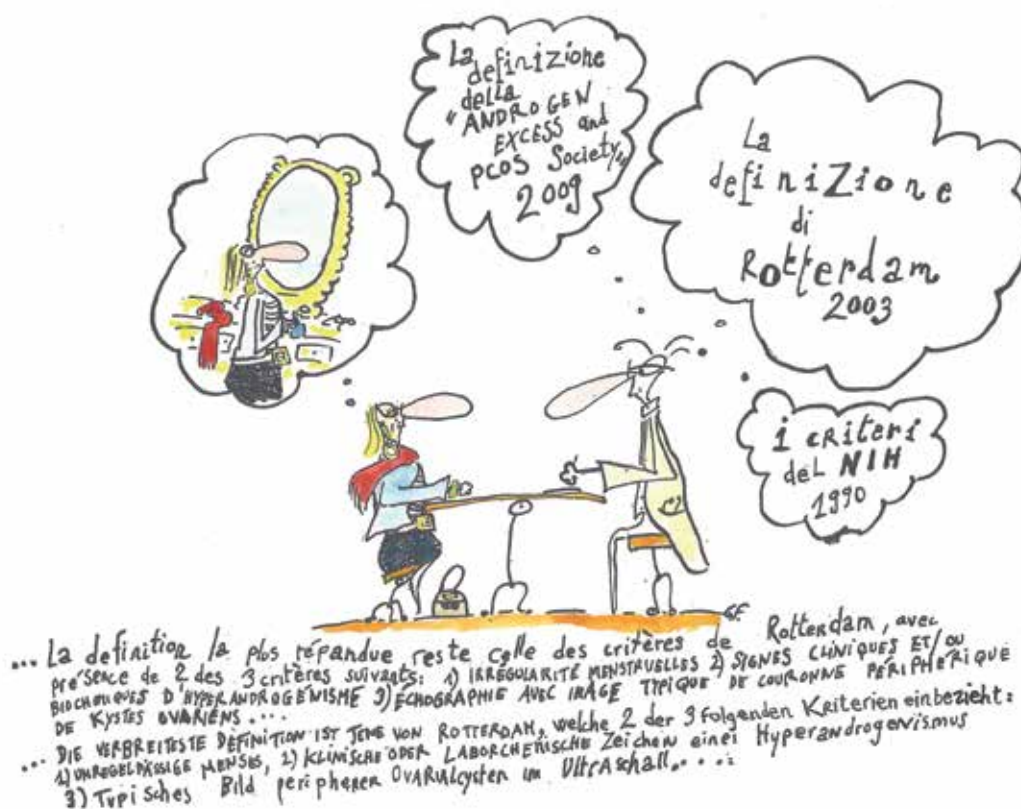 La
definizione
della
"ANDROGEN
EXCESS and
PCOS Society"
2009
La
definizione
di
Rotterdam
2003
i criteri
del NIH
1990
G.F.
... La definition la plus répandue reste celle des critères de Rotterdam, avec
présence de 2 des 3 critères suivants: 1) IRRÉGULARITÉ MENSTRUELLES 2) SIGNES CLINIQUES ET/OU
BIOCHIMIQUES D'HYPERANDROGENISME 3) ECHOGRAPHIE AVEC IMAGE TYPIQUE DE COURONNE PÉRIPHÉRIQUE
DE KYSTES OVARIENS ....
... DIE VERBREITESTE DEFINITION IST JENE VON ROTTERDAM, welche 2 der 3 folgenden Kriterien einbezieht:
1) UNREGELMÄSSIGE MENSES, 2) KLINISCHE ODER LABORCHEMISCHE Zeichen einer Hyperandrogenismus
3) Typisches Bild peripherer OVARIALCYSTEN im Ultraschall....: